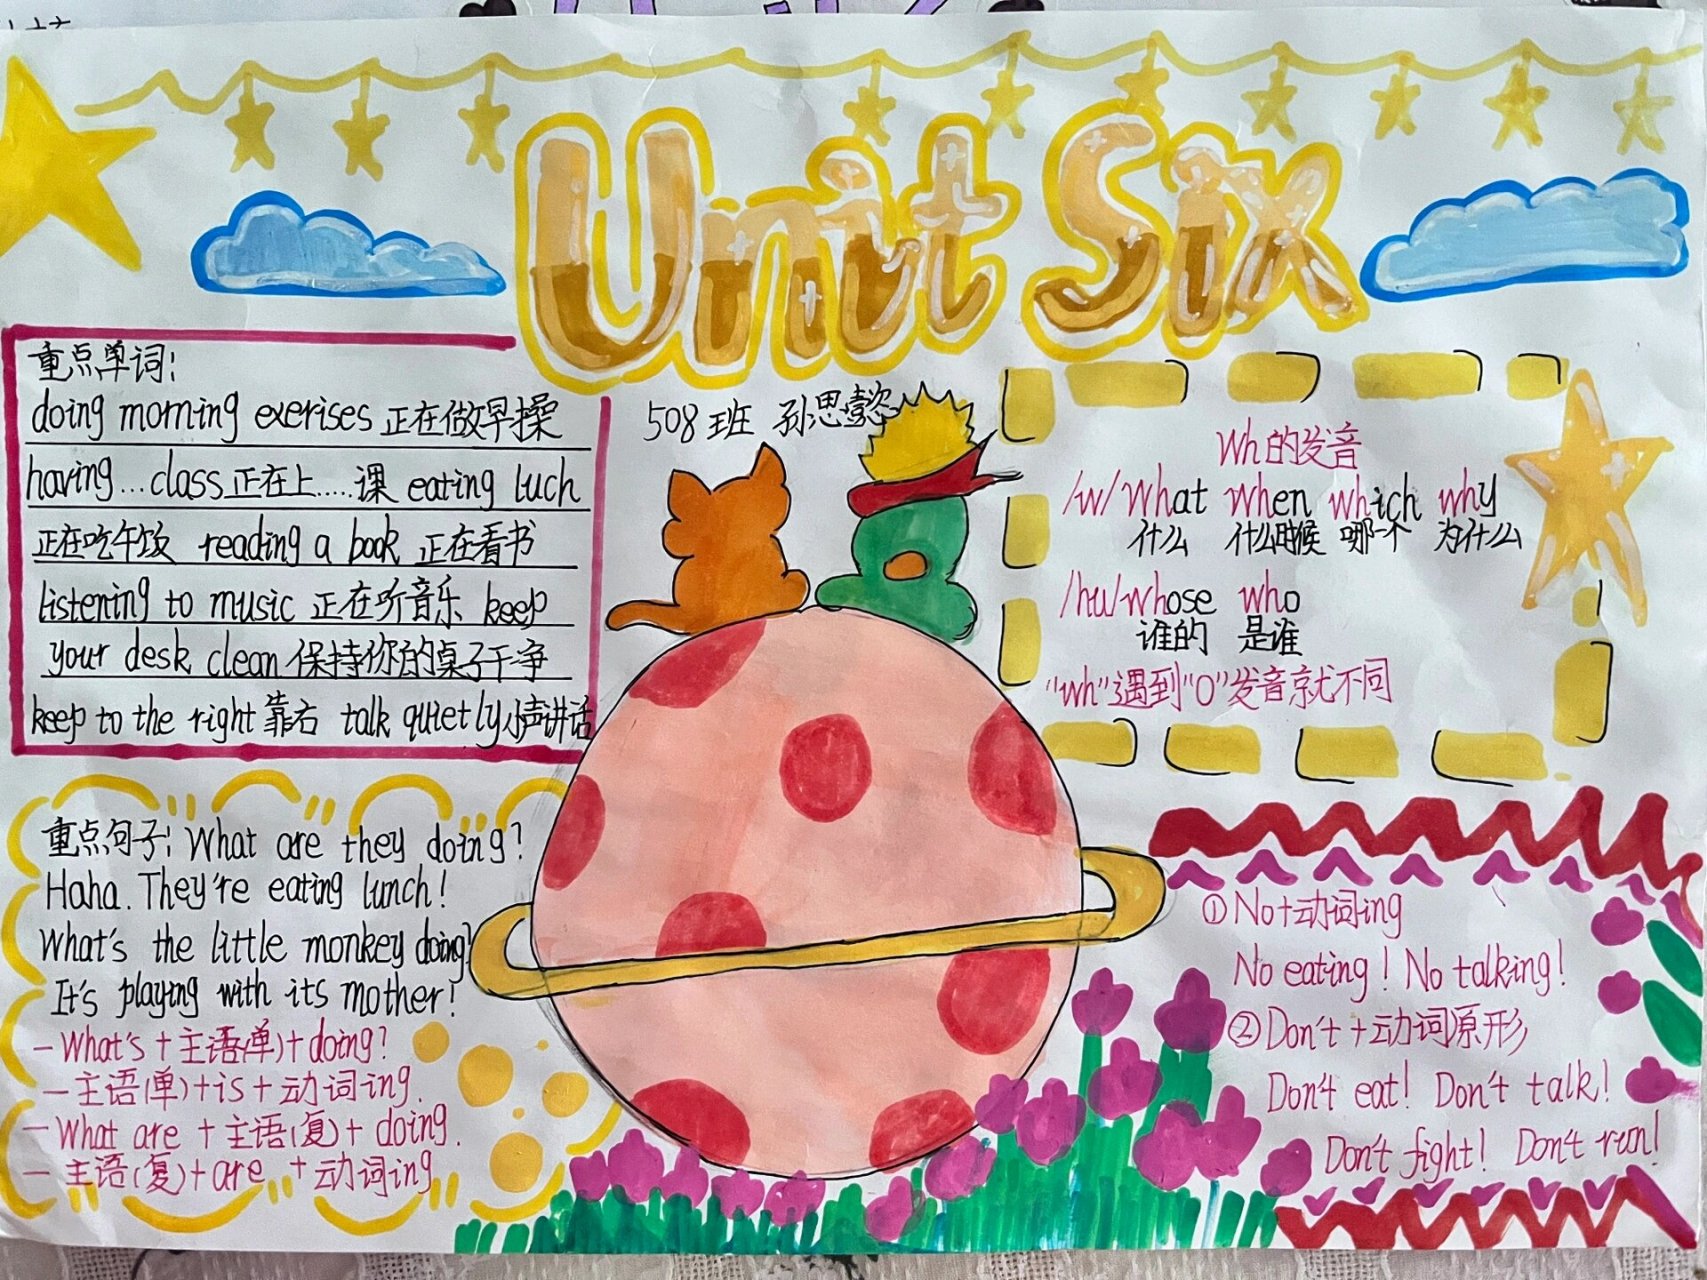 Unit Six
508班 孙思懿
重点单词:
doing morning exerises 正在做早操
having...class正在上.....课 eating luch
正在吃午饭 reading a book 正在看书
listening to music 正在听音乐 keep
your desk clean 保持你的桌子干净
keep to the right 靠右 talk quietly小声讲话
Wh的发音
/w/ what when which why
什么 什么时候 哪一个 为什么
/hu/whose who
谁的 是谁
"wh"遇到"O"发音就不同
重点句子: What are they doing?
Haha. They're eating lunch!
What's the little monkey doing?
It's playing with its mother!
-What's+主语(单)+doing?
-主语(单)+is+动词ing.
-What are +主语(复)+ doing.
-主语(复)+are +动词ing
①No+动词ing
No eating! No talking!
②Don't+动词原形
Don't eat! Don't talk!
Don't fight! Don't run!